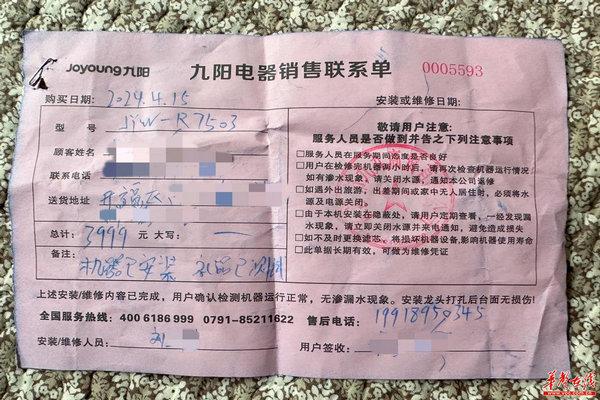 Joyoung九阳 九阳电器销售联系单 0005593
购买日期: 2024.4.15 安装或维修日期:
型 号 JYW-R7503
顾客姓名
联系电话
送货地址
总计: 3999 元 大写: 一
备注: 机器已安装
敬请用户注意:
服务人员是否做到并告之下列注意事项
□服务人员在服务期间态度是否良好
□用户在检修完机器两小时后,请再次检查机器运行情况
如有渗水现象,请关闭水源,通知本公司返修
□如遇外出旅游,出差期间或家中无人居住时,必须将水
源及电源关闭。
□由于本机安装在隐蔽处,请用户定期查看,一经发现漏
水现象,请立即关闭水源并来电通知,避免造成损失
□如不及时更换滤芯、将损坏机器设备,影响机器使用寿命
□此单据长期有效,可做为维修凭证
上述安装/维修内容已完成,用户确认检测机器运行正常,无渗漏水现象。安装龙头打孔后台面无损伤!
全国服务热线: 400 6186 999 0791-85211622 售后电话: 19918950345
安装/维修人员: 刘 用户签收:
华声在线
www.voc.com.cn